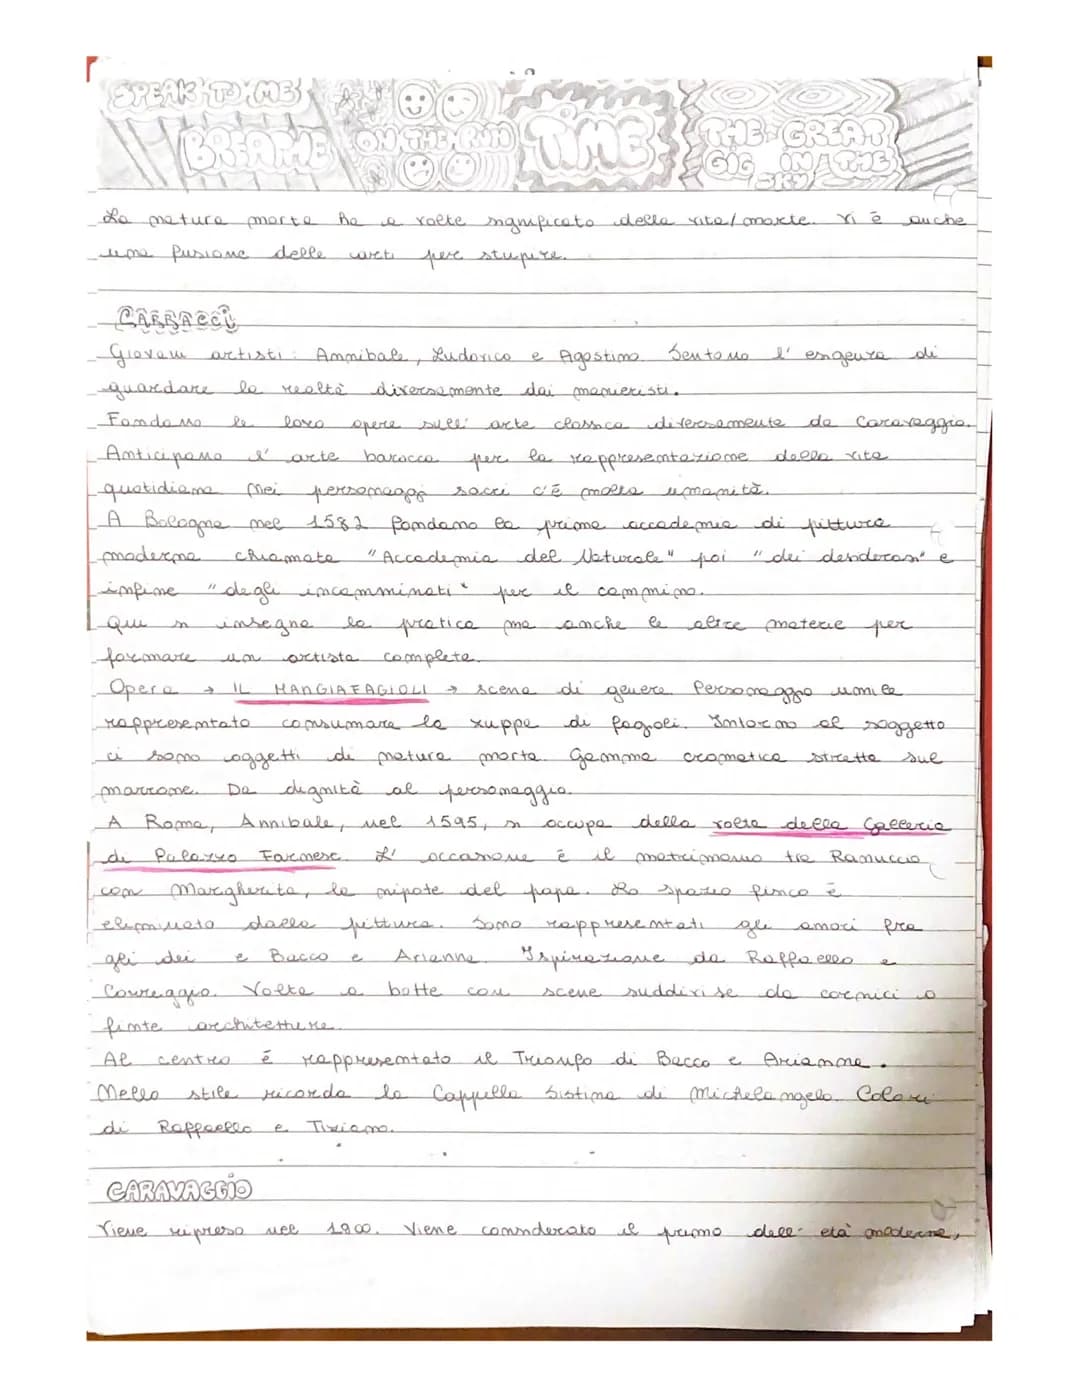 SPEAK TO ME
BREATHE
ON THE RUN
TIME
THE GREAT
GIG IN THE
SKY
La natura morta ha a volte significato della vita/morte. Vi è anche
una fusione delle arti per stupire.
CARRACCI
Giovani artisti: Annibale, Ludovico e Agostino. Sentono l'esigenza di
guardare la realtà diversamente dai manieristi.
Fondano le loro opere sull'arte classica diversamente da Caravaggio.
Anticipano l'arte barocca per la rappresentazione della vita
quotidiana. Nei personaggi sacri c'è molta umanità.
A Bologna nel 1582 fondano la prima accademia di pittura
moderna chiamata "Accademia del Naturale" poi "dei desiderosi" e
infine "degli incamminati" per il cammino.
Qui si insegna la pratica ma anche le altre materie per
formare un artista completo.
Opera → IL MANGIAFAGIOLI → scena di genere. Personaggio umile
rappresentato consumare la zuppa di fagioli. Intorno al soggetto
ci sono oggetti di natura morta. Gamma cromatica stretta sul
marrone. Da dignità al personaggio.
A Roma, Annibale, nel 1595, si occupa della volta della Galleria
di Palazzo Farnese. L'occasione è il matrimonio tra Ranuccio
con Margherita, la nipote del papa. Lo spazio fisico è
eliminato dalla pittura. Sono rappresentati gli amori fra
gli dei e Bacco e Arianna. Ispirazione da Raffaello e
Correggio. Volta a botte con scene suddivise da cornici o
finte architetture.
Al centro è rappresentato il Trionfo di Bacco e Arianna.
Nello stile ricorda la Cappella Sistina di Michelangelo. Colori
di Raffaello e Tiziano.
CARAVAGGIO
Viene ripreso nel 1900. Viene considerato il primo dell'età moderna,